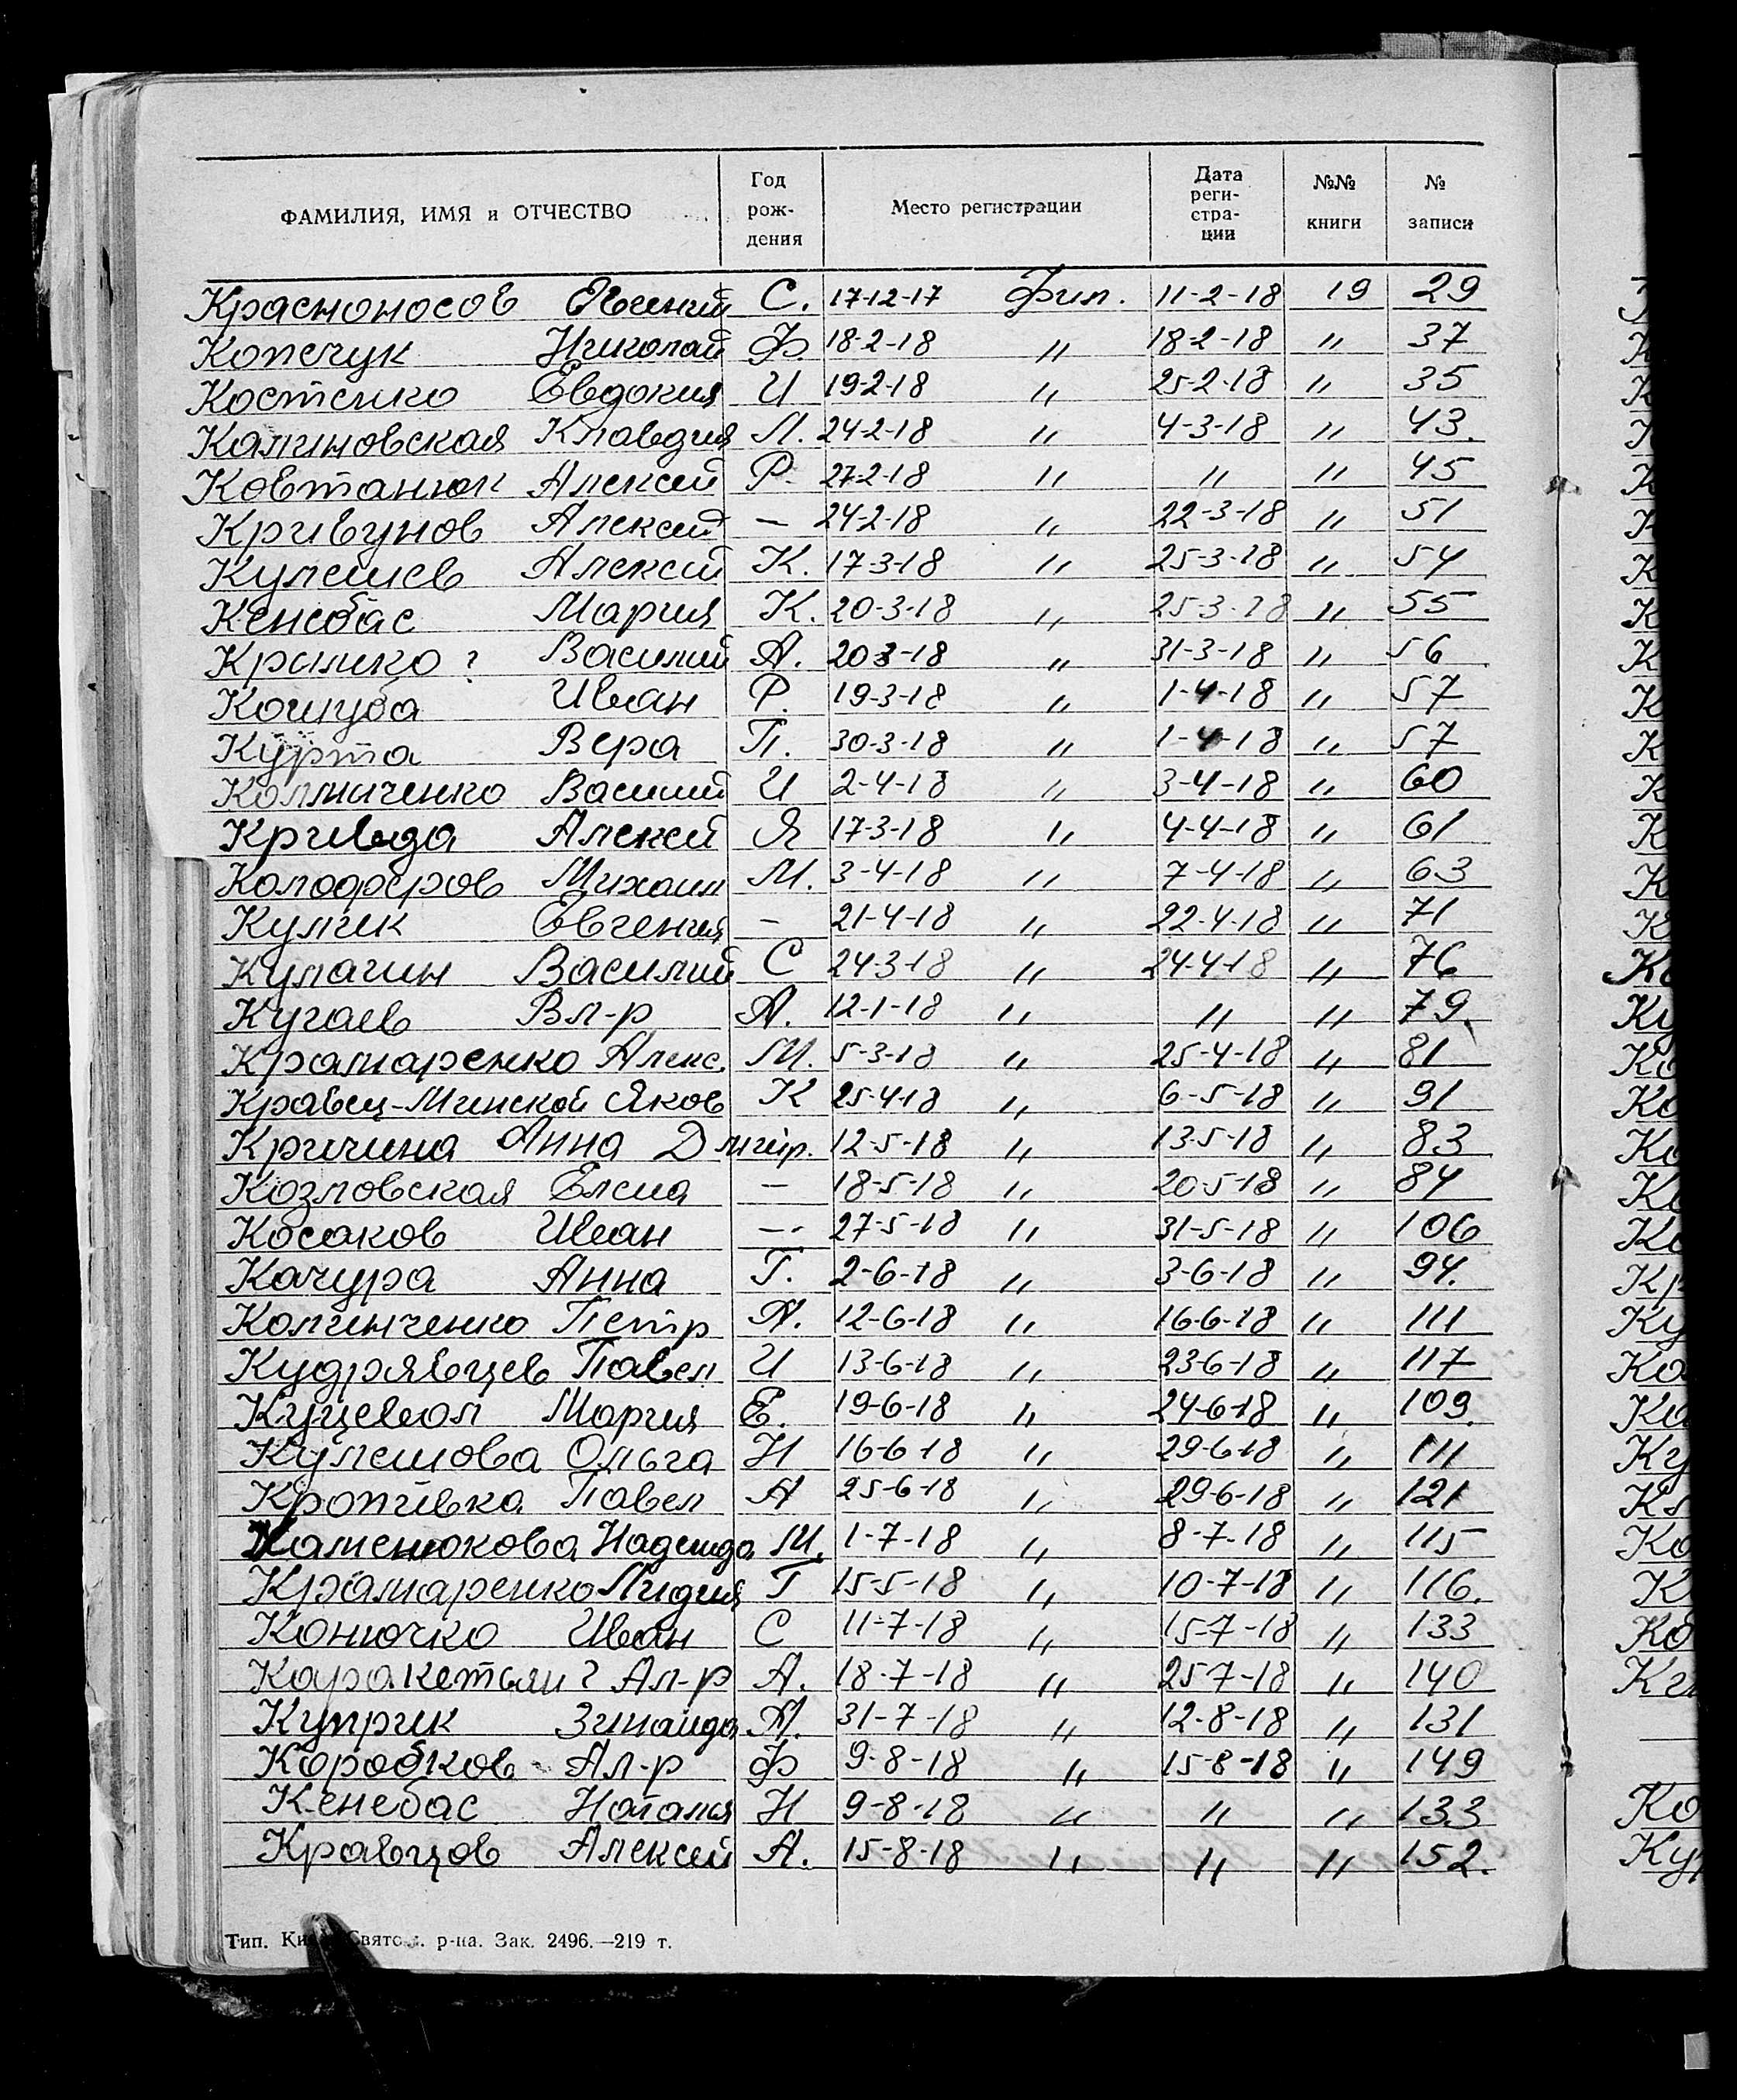 ФАМИЛИЯ, ИМЯ и ОТЧЕСТВО Год рож- дения Место регистрации Дата реги- стра- ции №№ книги № записи
Красноносов Евгений С. 17-12-17 Фил. 11-2-18 19 29
Копчук Николай Ф. 18-2-18 " 18-2-18 " 37
Костенко Евдокия И 19-2-18 " 25-2-18 " 35
Калиновская Клавдия Л. 24-2-18 " 4-3-18 " 43.
Ковтанюк Алексей Р. 27-2-18 " " " 45
Кривунов Алексей — 24-2-18 " 22-3-18 " 51
Кулешев Алексей К. 17-3-18 " 25-3-18 " 54
Кенебас Мария К. 20-3-18 " 25-3-18 " 55
Кралко ? Василий А. 20-3-18 " 31-3-18 " 56
Кошуба Иван Р. 19-3-18 " 1-4-18 " 57
Курта Вера П. 30-3-18 " 1-4-18 " 57
Калниченко Василий И 2-4-18 " 3-4-18 " 60
Кривда Алексей Я 17-3-18 " 4-4-18 " 61
Колофоров Михаил М. 3-4-18 " 7-4-18 " 63
Кулик Евгения — 21-4-18 " 22-4-18 " 71
Кулагин Василий С 24-3-18 " 24-4-18 " 76
Кугаев Вл-р А. 12-1-18 " " " 79.
Крамаренко Алекс. М. 5-3-18 " 25-4-18 " 81
Кравец-Минской Яков К 25-4-18 " 6-5-18 " 91
Кричина Анна Дмитр. 12-5-18 " 13-5-18 " 83
Козловская Елена — 18-5-18 " 20-5-18 " 84
Косаков Иван — 27-5-18 " 31-5-18 " 106
Качура Анна Г. 2-6-18 " 3-6-18 " 94.
Калинченко Петр А. 12-6-18 " 16-6-18 " 111
Кудрявцев Павел И 13-6-18 " 23-6-18 " 117
Куцевол Мария Е. 19-6-18 " 24-6-18 " 109.
Кулешова Ольга Н 16-6-18 " 29-6-18 " 111
Кропивка Павел А 25-6-18 " 29-6-18 " 121
Каменюкова Надежда М. 1-7-18 " 8-7-18 " 115
Крамаренко Лидия Т 15-5-18 " 10-7-18 " 116.
Конючко Иван С 11-7-18 " 15-7-18 " 133
Каракетьян ? Ал-р А. 18-7-18 " 25-7-18 " 140
Куприк Зинаида А. 31-7-18 " 12-8-18 " 131
Коробков Ал-р Ф 9-8-18 " 15-8-18 " 149
Кенебас Наталья Н 9-8-18 " " " 133
Кравцов Алексей А. 15-8-18 " " " 152.
Тип. р-на. Зак. 2496.—219 т.